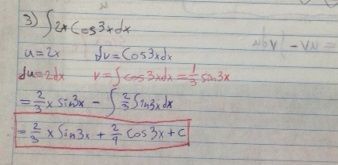 3) ∫2x Cos3x dx
u=2x dv=Cos3xdx
du=2dx v=∫cos3xdx=1/3 sin3x
=2/3 x sin3x - ∫2/3 Sin3x dx
=2/3 x Sin3x + 2/9 Cos3x + C